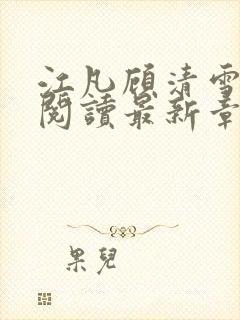 江凡顾清雪
閱讀最新章
果兒